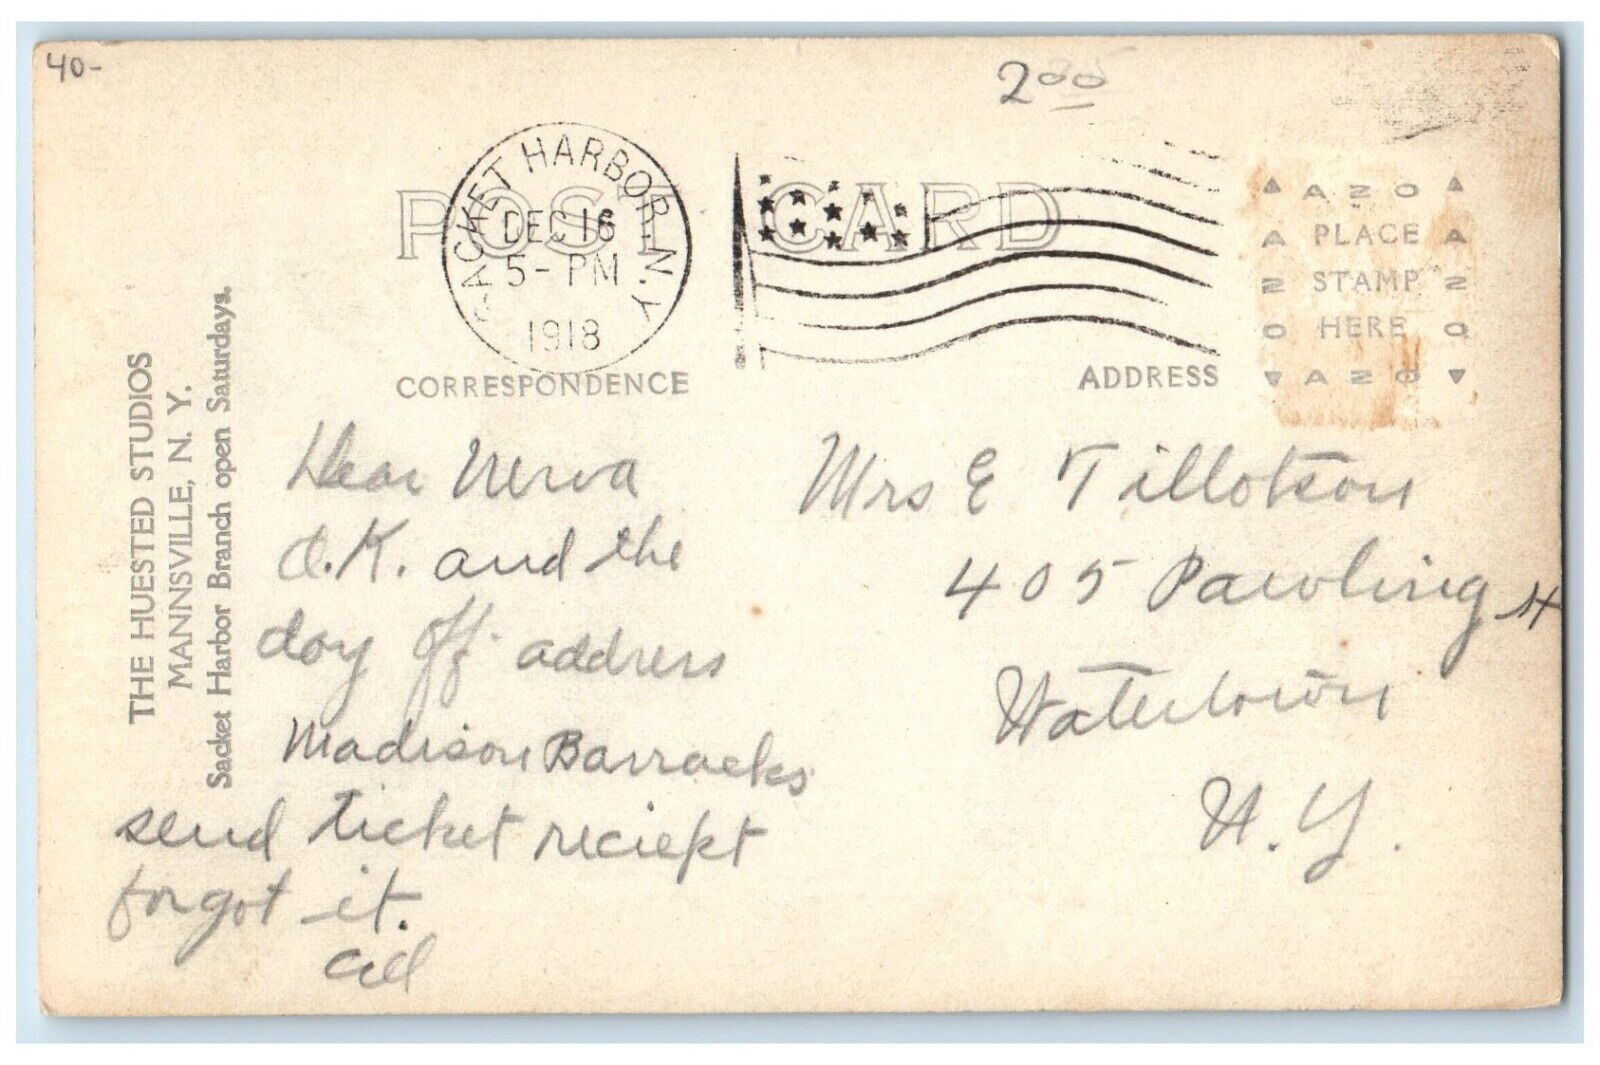 40-
2.00
SACKET HARBOR N.Y.
DEC 16
5- PM
1918
POST CARD
AZO
PLACE
STAMP
HERE
AZO
CORRESPONDENCE
ADDRESS
THE HUESTED STUDIOS
MANNSVILLE, N. Y.
Sacket Harbor Branch open Saturdays.
Dear Nerva
O.K. and the
day off address
Madison Barracks
send ticket reciept
forgot it.
Mrs E Tillotson
405 Pawling st
Watertown
N.Y.